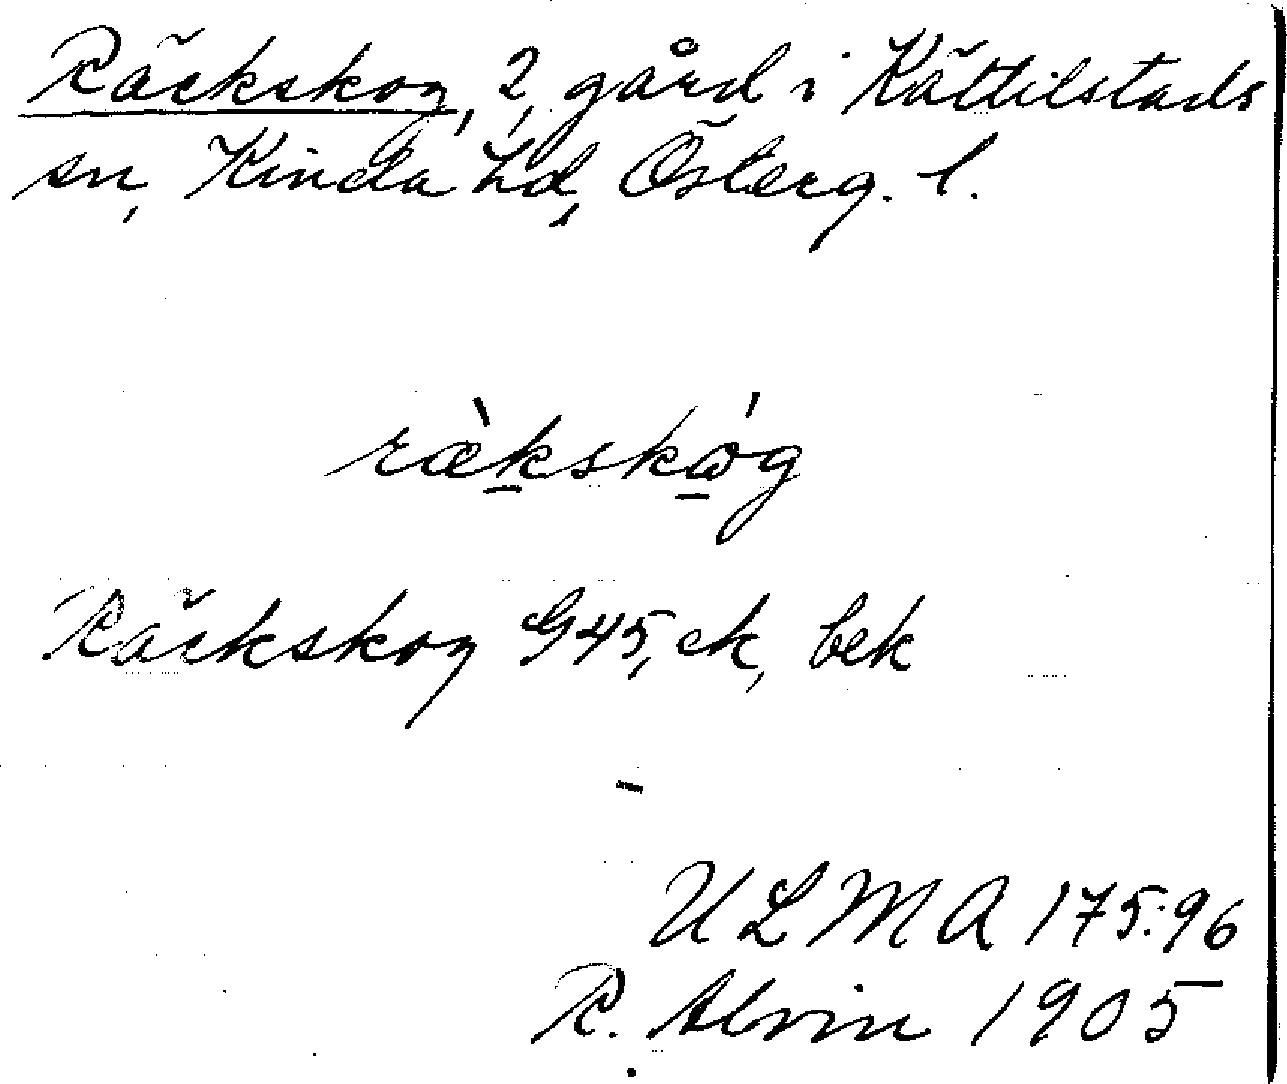 Räckskog, 2, gård i Kättilstads
sn, Kinda hd, Österg. l.
ræ̀kskⱺ́g
Räckskog G45, ek, bek
ULMA 175:96
R. Alvin 1905